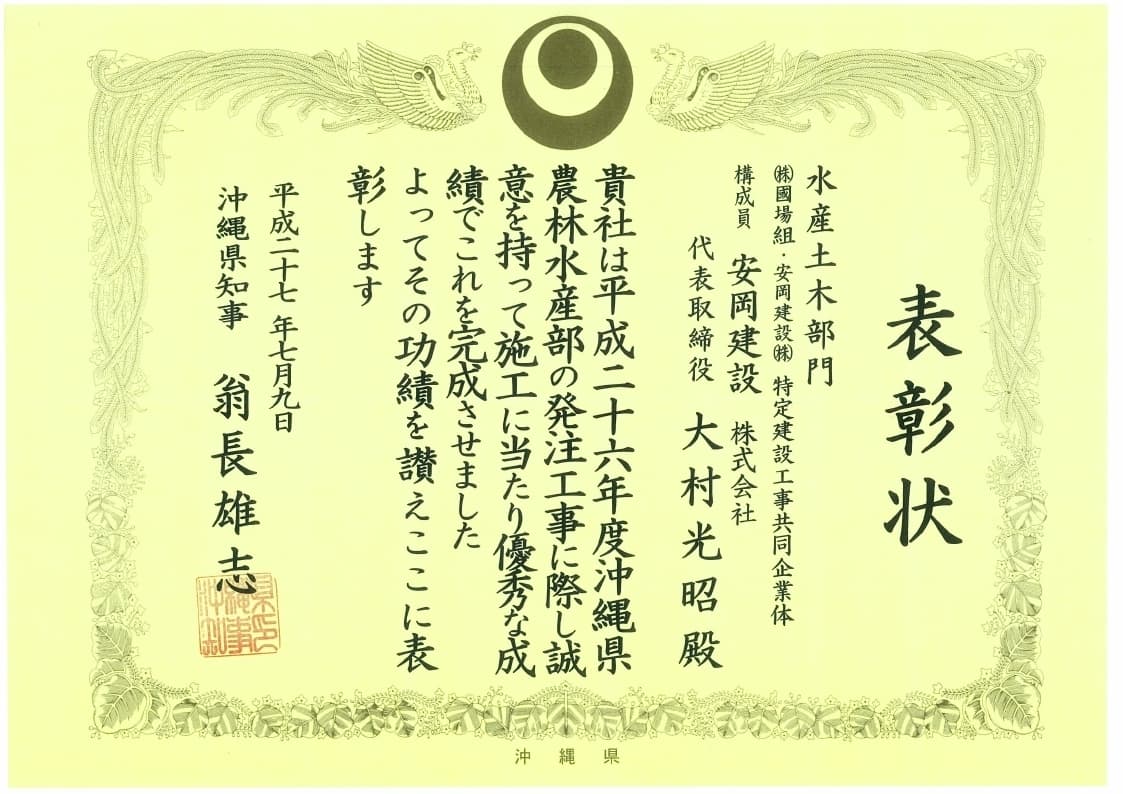 表彰状
水産土木部門
㈱國場組・安岡建設㈱ 特定建設工事共同企業体
構成員 安岡建設 株式会社
代表取締役 大村光昭殿
貴社は平成二十六年度沖縄県
農林水産部の発注工事に際し誠
意を持って施工に当たり優秀な成
績でこれを完成させました
よってその功績を讃えここに表
彰します
平成二十七年七月九日
沖縄県知事 翁長雄志
沖縄県